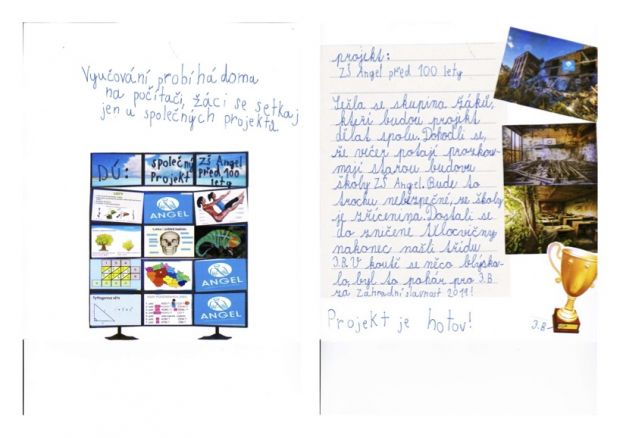 Vyučování probíhá doma
na počítači, žáci se setkaj
jen u společných projekta
DÚ:
společný
Projekt
ZŠ Angel
před 100
lety
ANGEL
ANGEL
ANGEL
projekt:
ZŠ Angel před 100 lety
Sešla se skupina žáků,
kteří budou projekt
dělat spolu. Dohodli se,
že večer potají prozkou-
mají starou budovu
školy ZŠ Angel. Bude to
trochu nebezpečné, ze školy
je zřícenina. Dostali se
do zničené tělocvičny
nakonec našli třídu
3.B. V koutě se něco blýska-
lo, byl to pohár pro 3.B
za Zahradní slavnost 2011!
Projekt je hotov!
3.B